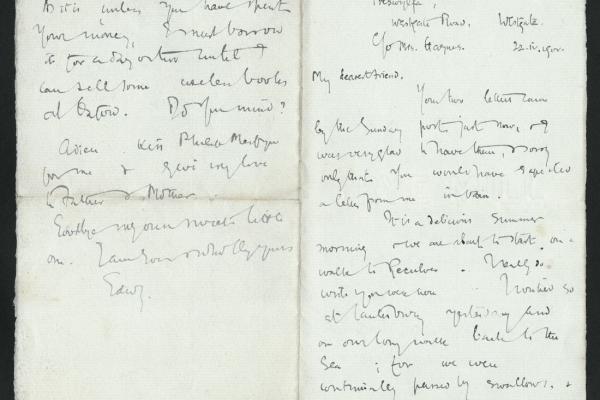 As it is unless you have spent
your money, I must borrow
it for a day or two until I
can sell some useless books
at Oxford. Do you mind?
Adieu. Kiss Philip Merfyn
for me & give my love
to Father & Mother.
Goodbye my own sweet little
one. I am ever & wholly yours
Edwy.
Westgate Road, Westgate.
C/o Mrs. Haynes. 22.iv.
My dearest friend.
Your two letters came
by the Sunday post just now, & I
was very glad to have them, & sorry
only that you would have expected
a letter from me in vain.
It is a delicious Summer
morning & we are about to start on a
walk to Reculver. I really do
wish you were here. I wished so
at Canterbury yesterday and
on our long walk back to the
Sea; for we were
continually passed by swallows, &